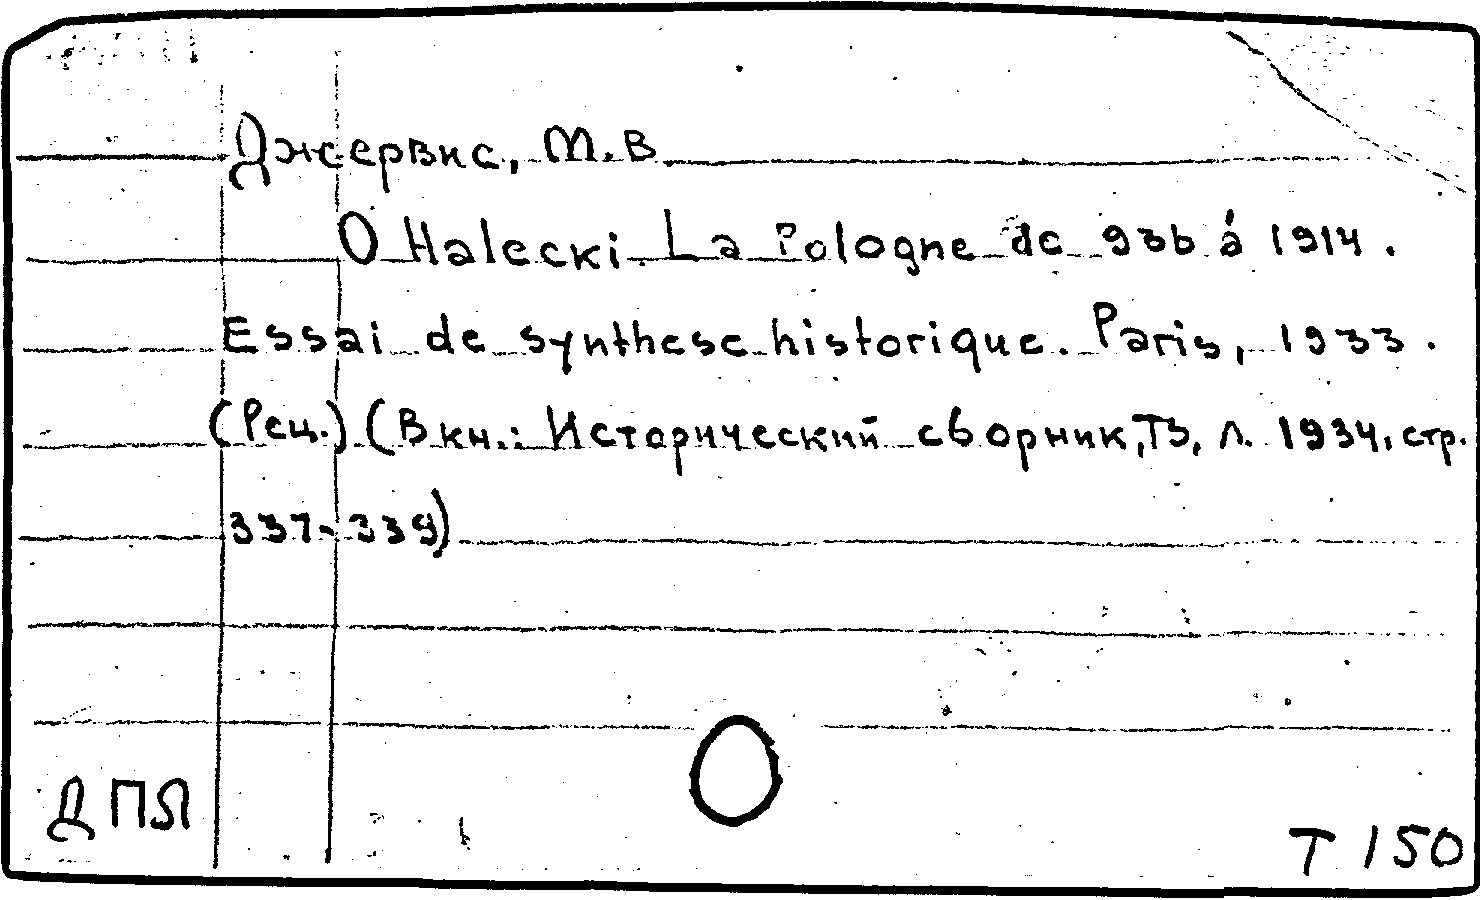 Джервис, М.В
O Halecki. La Pologne de 966 á 1914.
Essai de synthese historique. Paris, 1933.
(Рец.) (В кн.: Исторический сборник, Т3, Л. 1934, стр.
337-339)
ДПЯ
Т 150